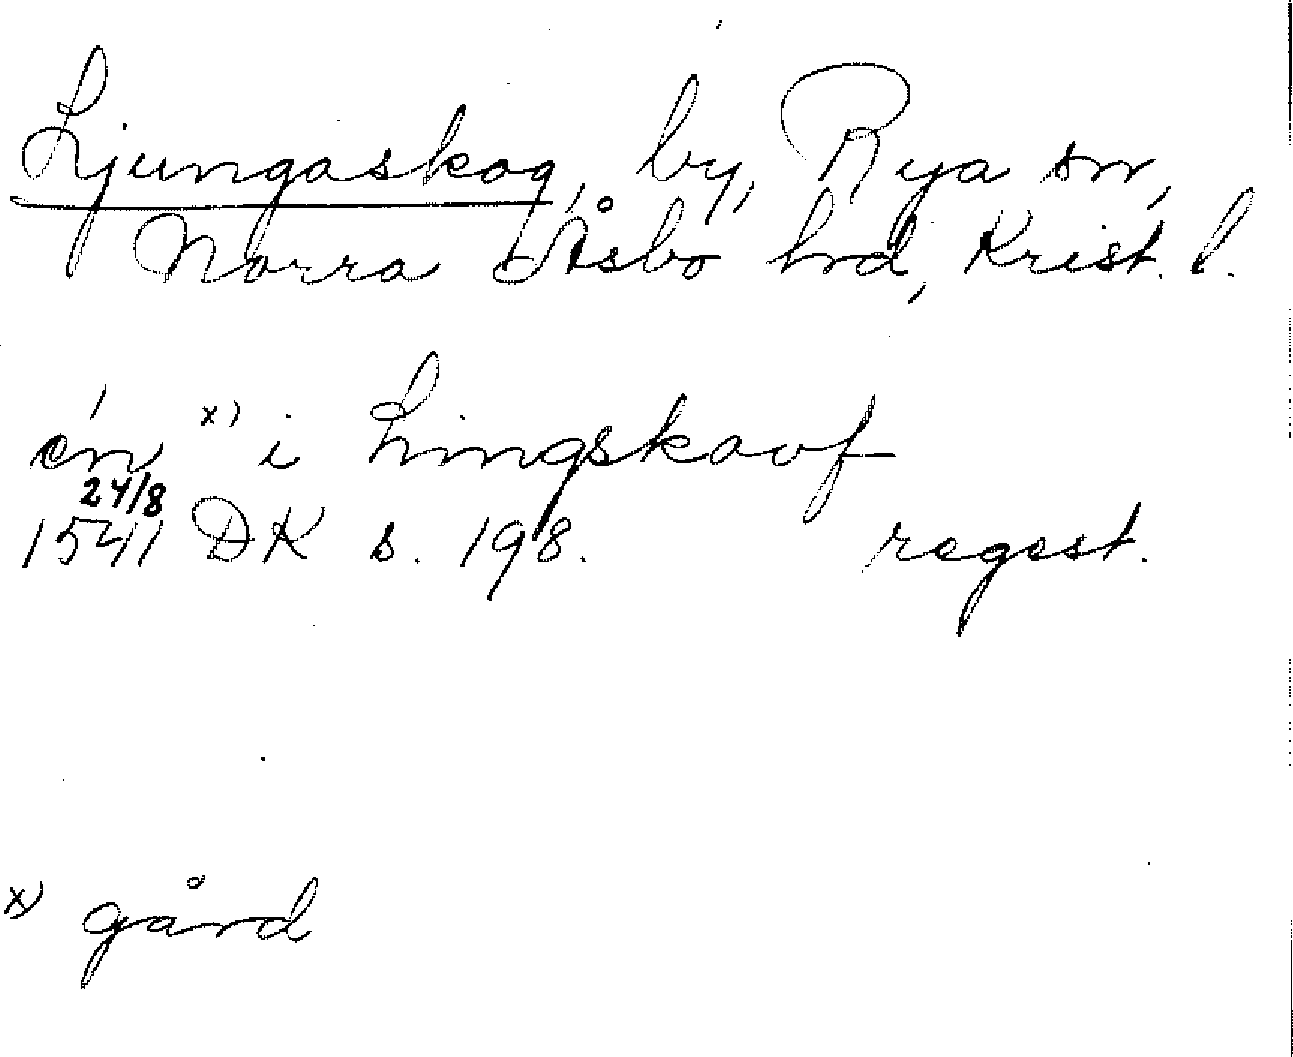 Ljungaskog, by, Rya sn,
Norra Åsbo hrd, Krist. l.
én x) i Lingskaof
24/8
1541 DK s. 198. regest.
x) gård